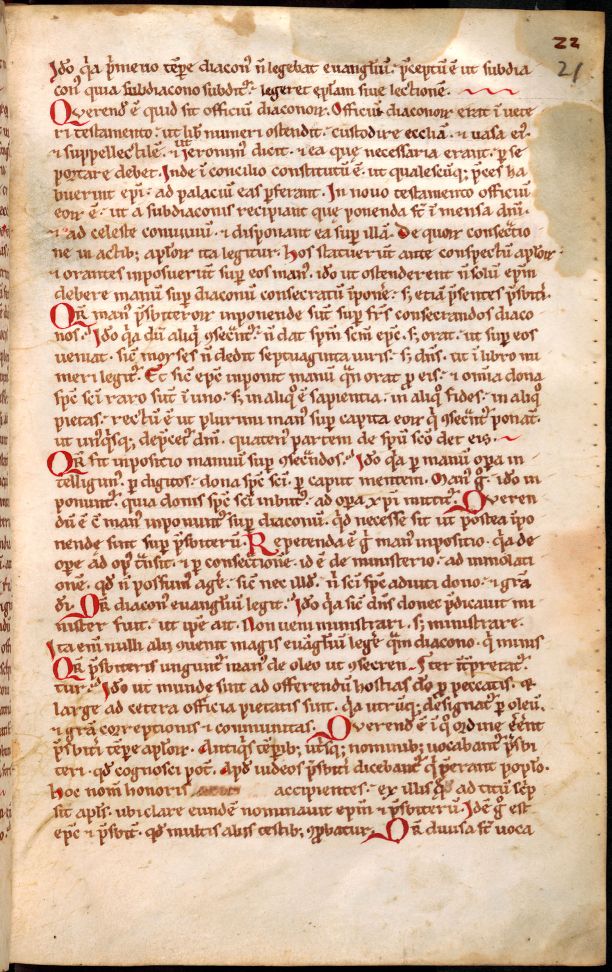 22
21
Ido q̃a p̃meuo tẽpe diacon' ñ legebat euangliũ. p̃ceptũ ẽ ut subdia
con' quia subdiacono subdit'. legeret eplam siue lectionẽ.
Querend' ẽ quid sit officiũ diaconoꝝ. Officiũ diaconoꝝ erat i uete
ri testamento. ut lib̃ numeri ostendit. custodire eccliã. ⁊ uasa ei'.
⁊ suppellectilẽ. ⁊ ut ieronim' dicit. ⁊ ea que necessaria erant. ꝑ se
portare debet. Inde i concilio constitutũ ẽ. ut qualescũq; p̃ces ha
buerint ep̃i. ad palaciũ eas ꝑferant. In nouo testamento officiũ
eoꝝ ẽ. ut a subdiaconis recipiant que ponenda st̃ i mensa dñi.
⁊ ad celeste conuiuiũ. ⁊ disponant ea suꝑ illã. De quoꝝ consecr̃tio
ne in actib; aploꝝ ita legitur. Hos statuerũt ante conspectũ aploꝝ.
⁊ orantes inposuerũt suꝑ eos man'. ido ut ostenderent ñ solũ ep̃m
debere manũ suꝑ diaconũ consecratũ ĩpoñe. s; etiã p̃sentes p̃sbit̃i.
Qr̃ man' p̃sbiteroꝝ inponende sũt suꝑ fr̃s consecrandos diaco
nos. Ido q̃a dũ aliq' ꝯsecr̃nt'. ñ dat sp̃m scm̃ ep̃c. s; orat. ut suꝑ eos
ueniat. sic̃ moyses ñ dedit septuaginta uiris. s; dñs. ut i libro nu
meri legit'. Et sic̃ ep̃c inponit manũ qñ orat ꝑ eis. ⁊ omia dona
sp̃c sci raro sũt i uno. s; in aliq' ẽ sapientia. in aliq' fides. in aliq'
pietas. rectũ ẽ ut plurimi man' suꝑ capita eoꝝ q' ꝯsecr̃nt' ponat.
ut unq'sq; dep̃cet' dñm. quaten' partem de sp̃u scõ det eis.
Qr̃ fit inpositio manuũ suꝑ ꝯsecr̃ndos. Ido q̃a ꝑ manũ oꝑa in
telligunt'. ꝑ digitos. dona sp̃c sci. ꝑ caput mentem. Man' g̃. ido in
ponunt'. quia donis sp̃c sci inbut'. ad oꝑa xp̃i mittit'. Queren
dũ ẽ c̃ man' inponunt' suꝑ diaconũ. qd necesse sit ut postea ĩpo
nende sint suꝑ p̃sbiterũ. Repetenda ẽ g̃ man' inpositio. q̃a de
oꝑe ad op' t̃nsit. ⁊ ꝑ consectionẽ. id ẽ de ministerio. ad inmolati
onẽ. qd ñ possum' agẽ. sic̃ nec illd. ñ sci sp̃c adiuti dono. ⁊ gr̃a
dĩ. Qr̃ diacon' euangliũ legit. Ido q̃a sic̃ dñs donec p̃dicauit mi
nister fuit. ut ip̃e ait. Non ueni ministrari. s; ministrare.
Ita em̃ nulli alij ꝯuenit magis euãgliũ legẽ qm̃ diacono. q' minis
Qr̃ p̃sbiteris ungunt' man' de oleo ut ꝯsecren Iter ĩt̃pretat'.
tur. Ido ut munde sint ad offerendũ hostias dõ ꝑ peccatis. ⁊
large ad cetera officia pietatis sint. q̃a utrũq; designat' ꝑ oleũ.
⁊ gr̃a correptionis ⁊ communitas. Querend' ẽ i q' ordine er̃ent
p̃sbiti tẽpe aploꝝ. Antiq's tẽpib; utisq; nominib; uocabant' p̃sbi
teri. qd cognosci pot̃. Apd' iudeos p̃sbiti dicebant' q' p̃erant poplo.
Hoc nom̃ honoris accipientes. ex illis q' ad titũ sc̃p
sit apls. ubi clare eundẽ nominauit ep̃m ⁊ p̃sbiterũ. Idẽ g̃ est
ep̃c ⁊ p̃sbit̃. qd multis aliis testib; ꝓbatur. Qr̃ diuisa st̃ uoca